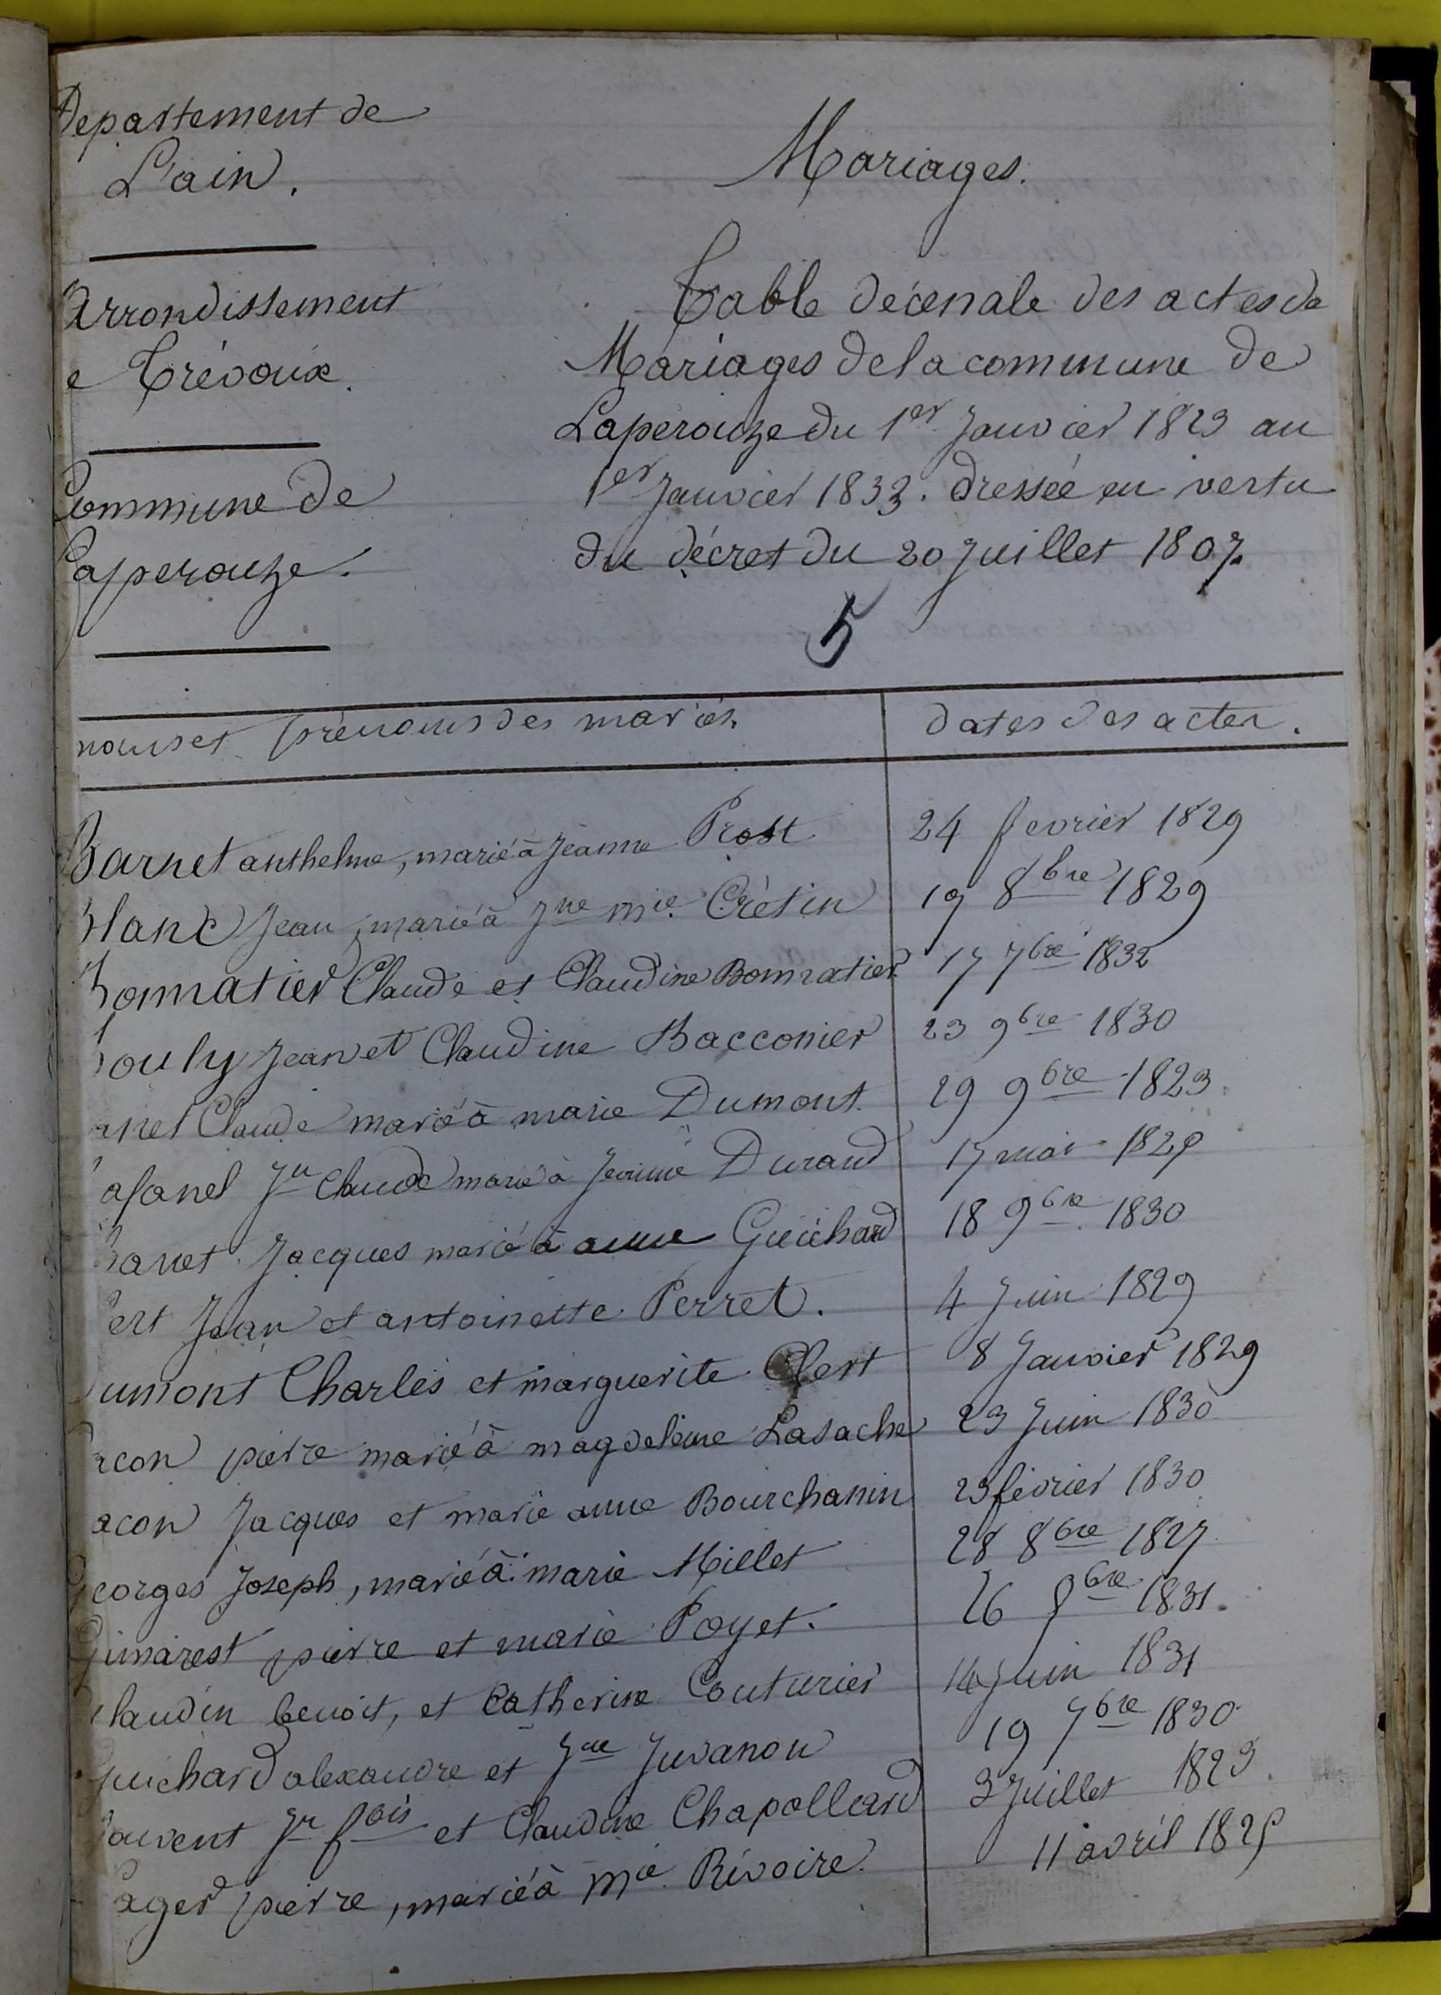 Departement de
L'ain.
Arrondissement
e Trévoux.
Commune de
Laperouze.
Mariages.
Table décenale des actes de
Mariages de la commune de
Laperouze du 1er Janvier 1823 au
1er Janvier 1833. dressée en vertu
du décret du 20 Juillet 1807.
5
noms et prénoms des mariés. dates des actes.
Barnet anthelme, marié à Jeanne Prost 24 fevrier 1829
Blanc Jean, marié à Jne Mie Crétin 19 8bre 1829
Bonmatier Claude et Claudine Bonmatier 17 7bre 1832
ouly Jean et Claudine Bacconier 23 9bre 1830
anet Claude marié à marie Dumont. 29 9bre 1823
afanel Jn Claude marié à Jeanne Durand 17 mai
anet Jacques marié à anne Guichard 18 9bre 1830
ert Jean et antoinette Perret. 4 Juin 1829
umont Charles et marguerite Clert 8 Janvier 1829
acon pierre marié à magdeleine Lasache 23 Juin 1830
acon Jacques et marie anne Bourchanin 23 février 1830
Georges Joseph, marié à marie Millet 28 8bre 1827
Gimarest pierre et marie Poyet. 26 8bre 1831.
laudin benoit, et Catherine Couturier 14 Juin 1831
Guichard alexandre et Jne Juvanon 19 7bre 1830
ouvent Jn fois et Claudine Chapolland 3 Juillet 1823.
ager pierre, marié à Mie Rivoire. 11 avril